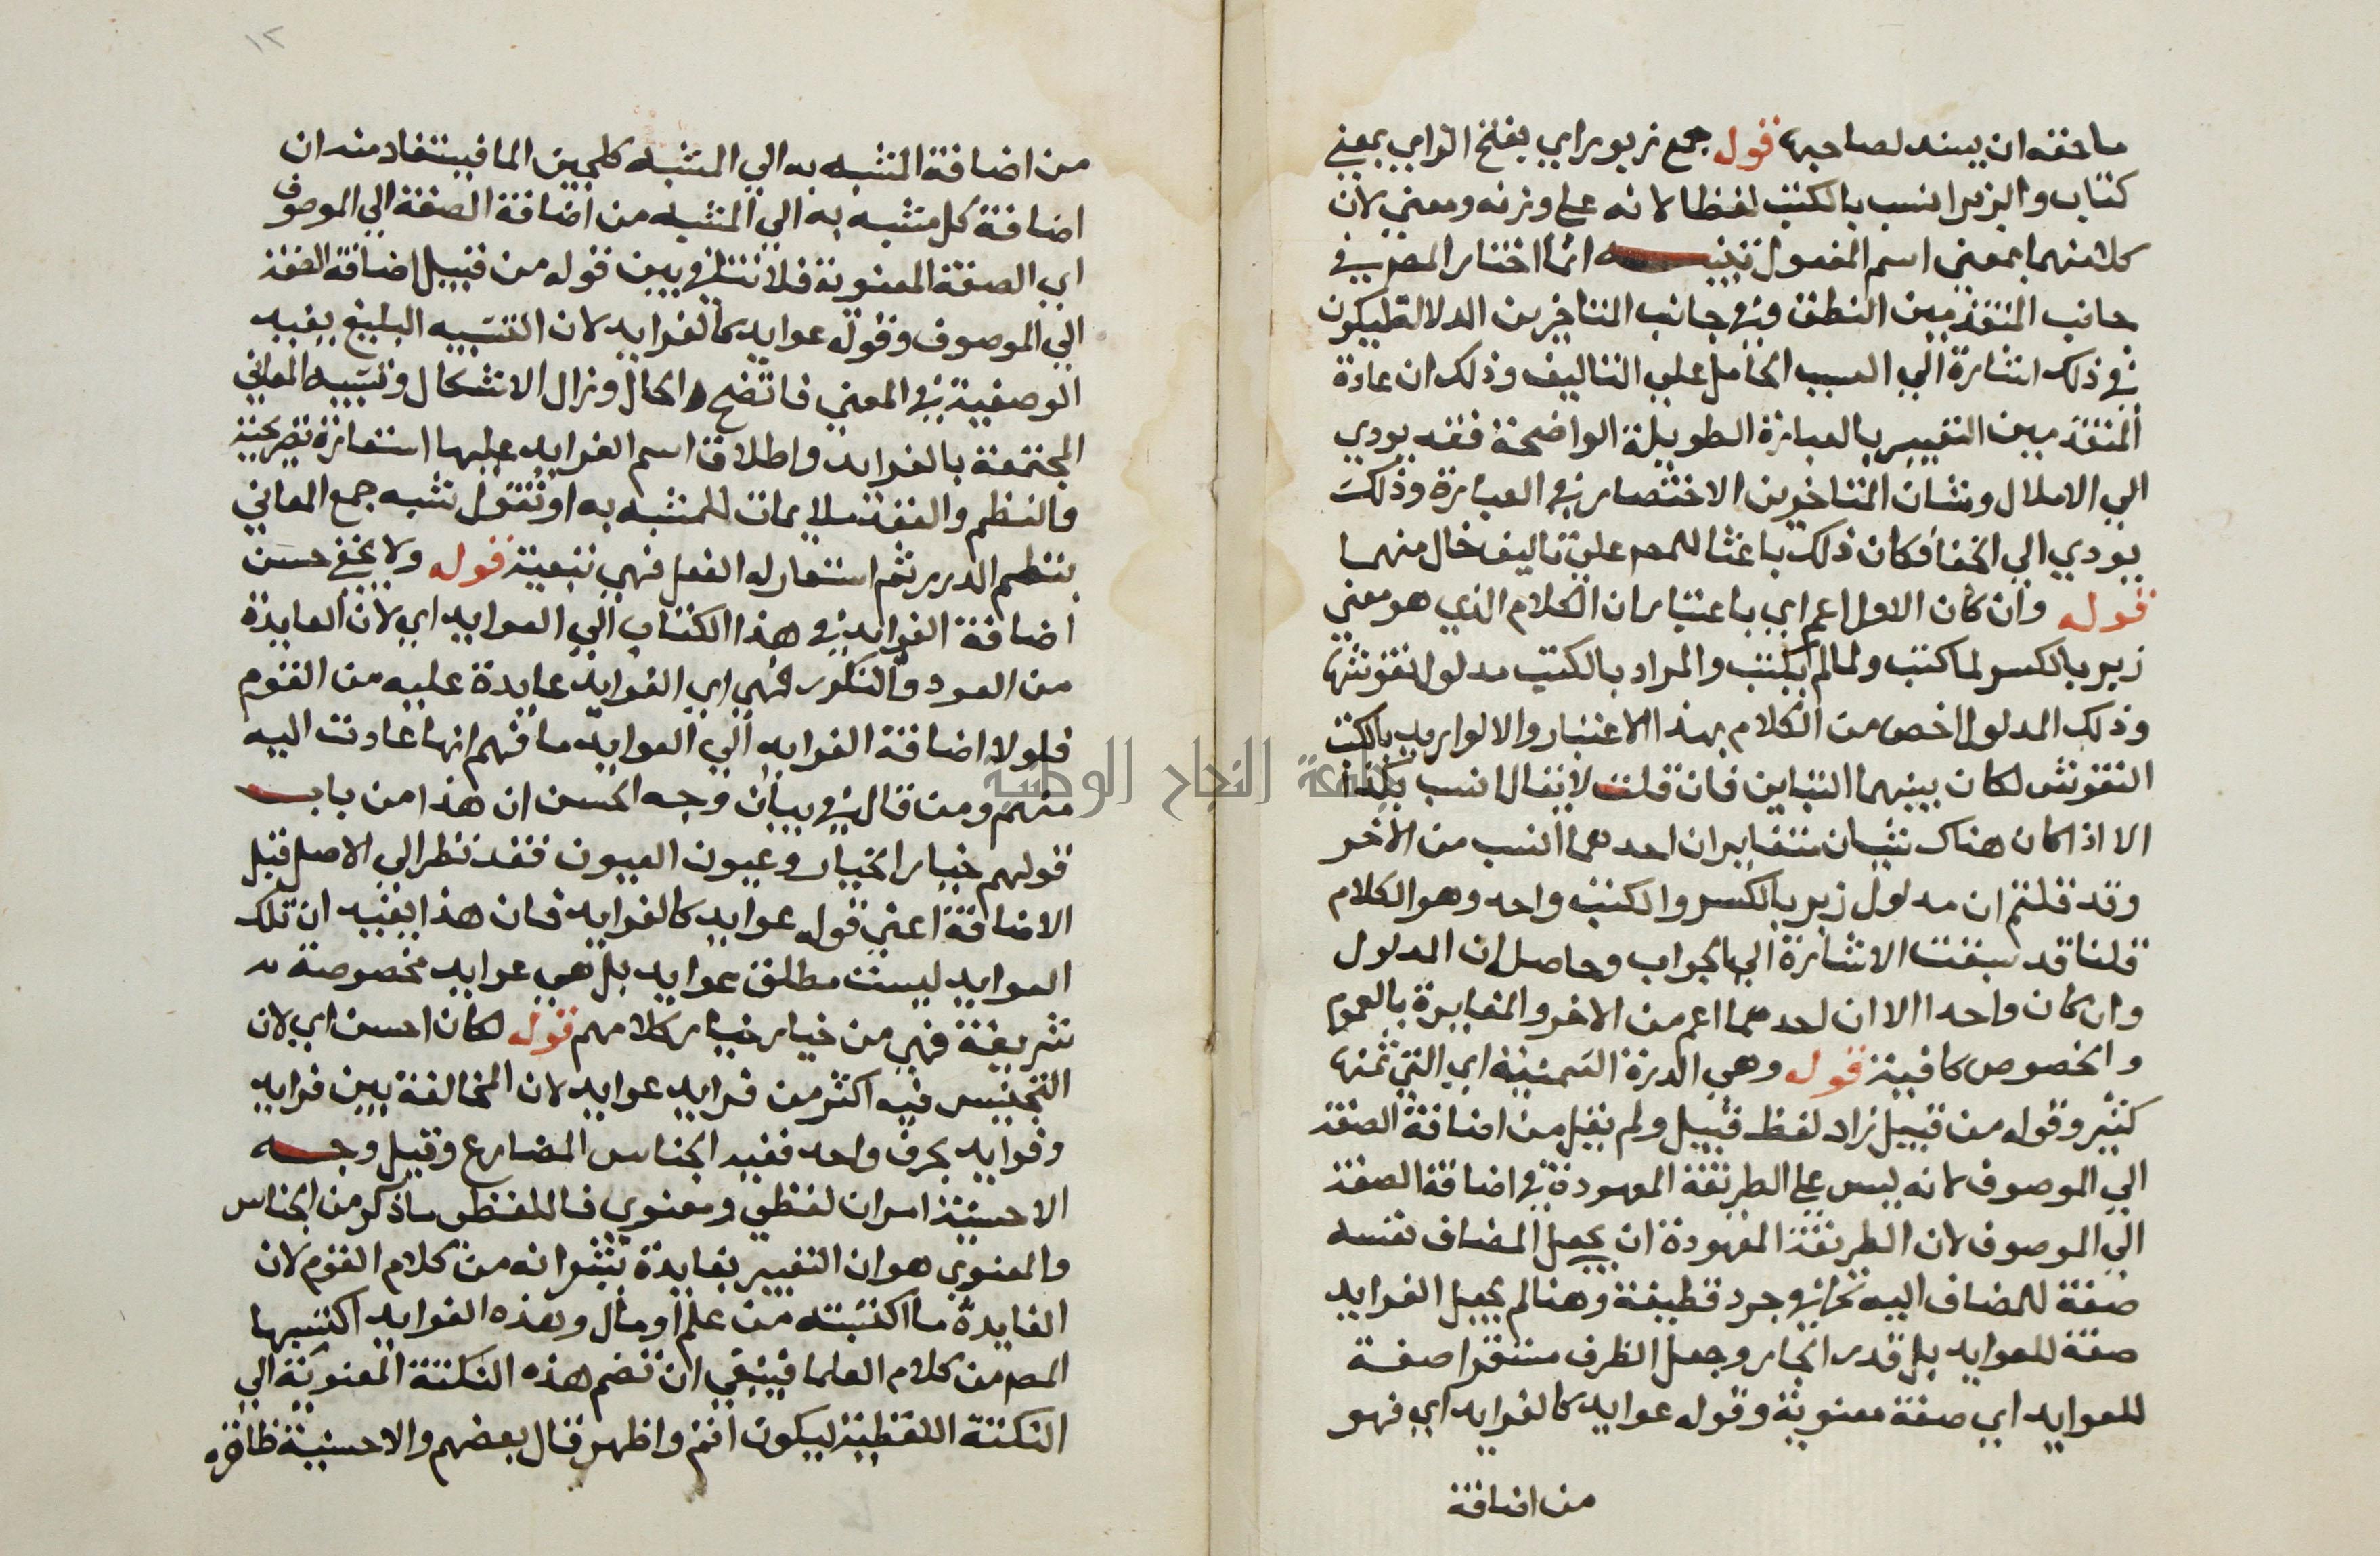 ما حقه ان يسند لصاحبها قوله جمع زبور اي بفتح الزاي بمعني
كتاب والزبر انسب بالكتب لفظا لانه علي وزنه ومعني لان
كلا منهما بمعني اسم المفعول تنبيه انما اختار المصر في
جانب المتقدمين النطق وفي جانب المتاخرين الدلالة ليكون
في ذلك اشارة الي السبب الحامل علي التاليف وذلك ان عادة
المتقدمين التعبير بالعبارة الطويلة الواضحة فقد يودي
الي الاملال وشان المتاخرين الاختصار في العبارة وذلك
يودي الي الخفا فكان ذلك باعثا للمصر علي تاليف خال منهما
قوله وان كان الاول اعم اي باعتبار ان الكلام الذي هو معني
زبر بالكسر لما كتب ولما لم يكتب والمراد بالكتب مدلول نقوشها
وذلك المدلول اخص من الكلام بهذا الاعتبار والا لو اريد بالكتب
النقوش لكان بينهما التباين فان قلت لا يقال انسب بكذا
الا اذا كان هناك شيان متغايران احدهما انسب من الاخر
وقد قلتم ان مدلول زبر بالكسر والكتب واحد وهو الكلام
قلنا قد سبقت الاشارة الي الجواب وحاصله ان المدلول
وان كان واحدا الا ان احدهما اعم من الاخر والمغايرة بالعموم
والخصوص كافية قوله وهي الدرة الثمينة اي التي ثمنها
كثير وقوله من قبيل زاد لفظ قبيل ولم يقل من اضافة الصفة
الي الموصوف لانه ليس علي الطريقة المعهودة في اضافة الصفة
الي الموصوف لان الطريقة المعهودة ان يجعل المضاف نفسه
صفة للمضاف اليه كما في جرد قطيفة وهنا لم يجعل الفرايد
صفة للعوايد بل قدر الجار وجعل الظرف مستقرا صفة
للعوايد اي صفة معنوية وقوله عوايد كالفرايد اي فهو
من اضافة
١٢
من اضافة المشبه به الي المشبه كلجين الما فيستفاد منه ان
اضافة كل مشبه به الي المشبه من اضافة الصفة الي الموصوف
اي الصفة المعنوية فلا تنافي بين قوله من قبيل اضافة الصفة
الي الموصوف وقوله عوايد كالفرايد لان التشبيه البليغ يفيد
الوصفية في المعني فاتضح الحال وزال الاشكال وتشبيه المعاني
المجتمعة بالفرايد واطلاق اسم الفرايد عليها استعارة تصريحية
والنظم والعقد ملايمات للمشبه به او تقول شبه جمع المعاني
بنظم الدرر ثم استعار له الفعل فهي تبعية قوله ولا يخفي حسن
اضافة الفرايد في هذا الكتاب الي العوايد اي لان العايدة
من العود والتكرر فهي اي الفرايد عايدة عليه من القوم
فلولا اضافة الفرايد الي العوايد ما فهم انها عادت اليه
منهم ومن قال في بيان وجه الحسن ان هذا من باب
قولهم خيار الخيار وعيون العيون فقد نظر الي الاصل قبل
الاضافة اعني قوله عوايد كالفرايد فان هذا يفيد ان تلك
العوايد ليست مطلق عوايد بل هي عوايد مخصوصة
شريفة فهي من خيار خيار كلامهم قوله لكان احسن اي لان
التجنيس فيه اكثر من فرايد عوايد لان المخالفة بين فرايد
وفوايد بحرف واحد ففيه الجناس المضارع وقيل وجه
الاحسنية امران لفظي ومعنوي فاللفظي ما ذكر من الجناس
والمعنوي هو ان التعبير بفايدة يشعر انه من كلام القوم لان
الفايدة ما اكتسبته من علم او مال وهذه الفوايد اكتسبها
المصر من كلام العلما فينبغي ان تضم هذه النكتة المعنوية الي
النكتة اللفظية ليكون اتم واظهر قال بعضهم والاحسنية ظاهرة
جامعة النجاح الوطنية